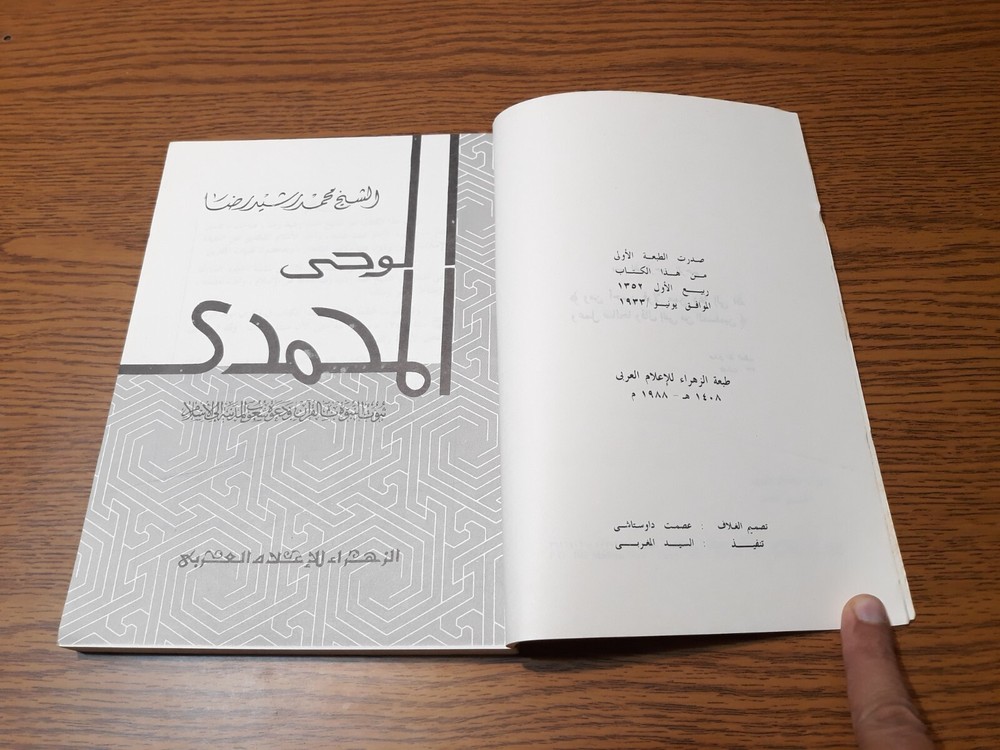 صدرت الطبعة الأولى
من هذا الكتاب
ربيع الأول ١٣٥٢
الموافق يونيو ١٩٣٣
طبعة الزهراء للإعلام العربى
١٤٠٨ هـ - ١٩٨٨ م
تصميم الغلاف : عصمت داوستاشى
تنفيذ : السيد المغربى
الشيخ محمد رشيد رضا
الوحى
المحمدى
ثبوت النبوة بالقرآن ودعوة شعوب المدنية إلى الإسلام
الزهراء للإعلام العربى